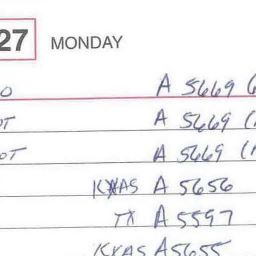 27 MONDAY
A 5669
OT A 5669
OT A 5669
KXAS A 5656
TX A 5597
KXAS A 5655